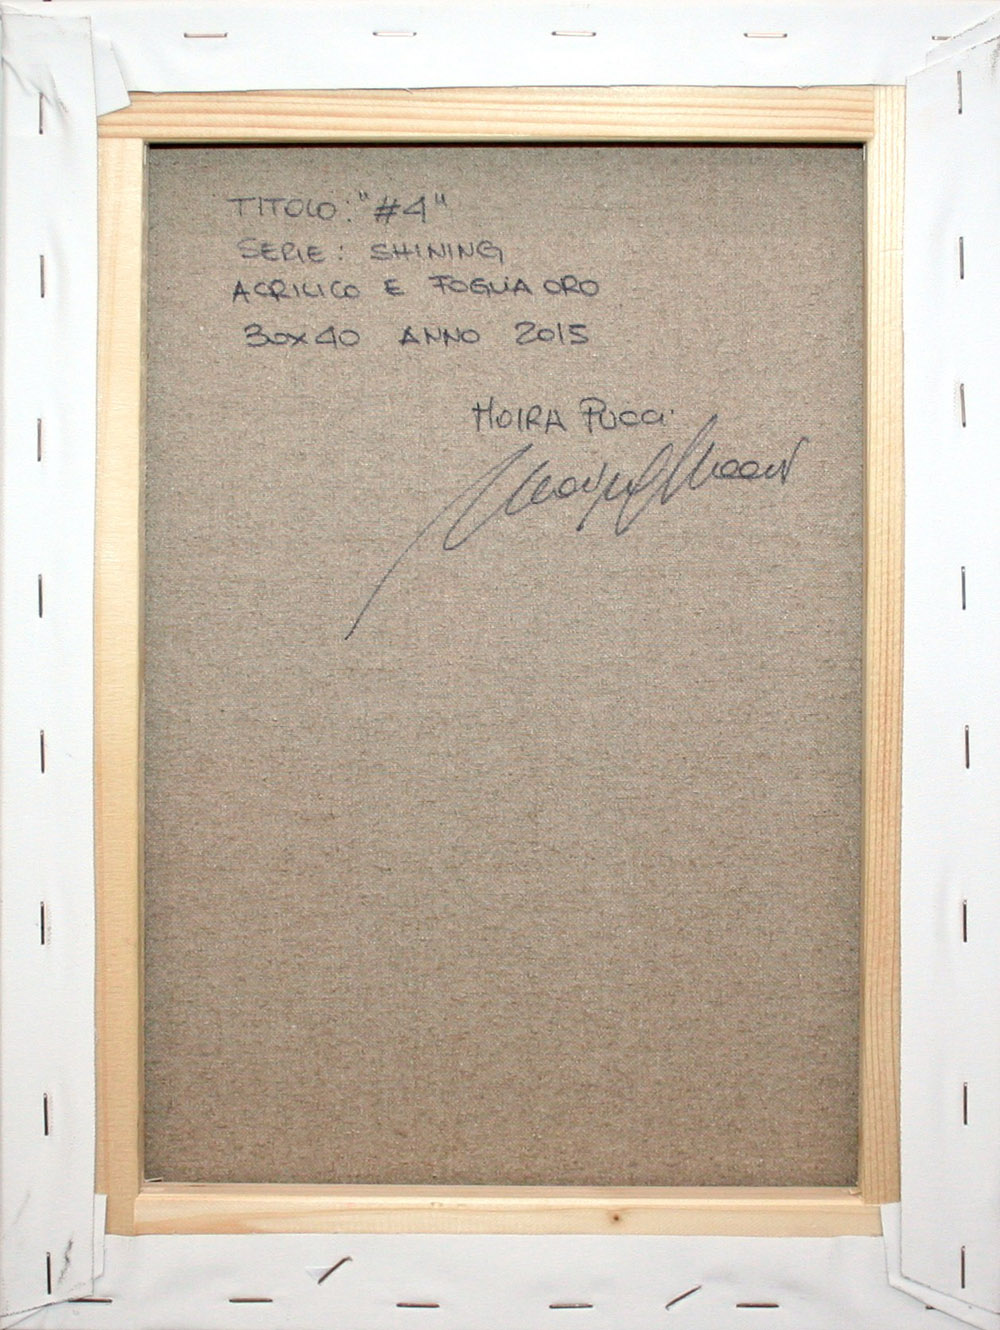 TITOLO: "#4"
SERIE: SHINING
ACRILICO E FOGLIA ORO
30x40 ANNO 2015
MOIRA PUCCI